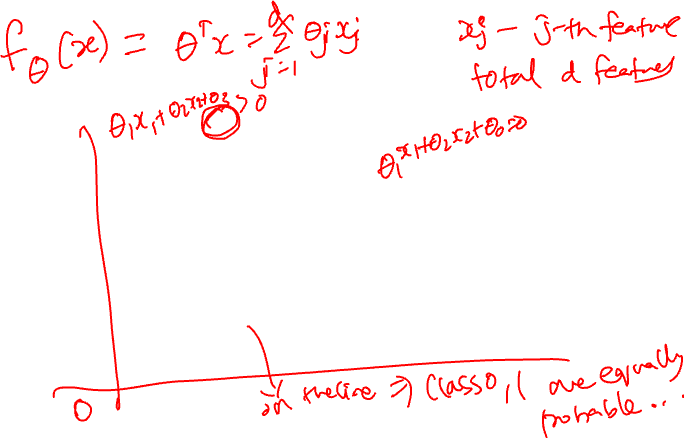 f_θ(x) = θᵀx = Σ_{j=1}^{d} θj xj
xj – j-th feature
total d features
θ1x1+θ2x2+θ3>0
θ1x1+θ2x2+θ0=0
0
the line ⇒ Class 0, 1 are equally
probable...